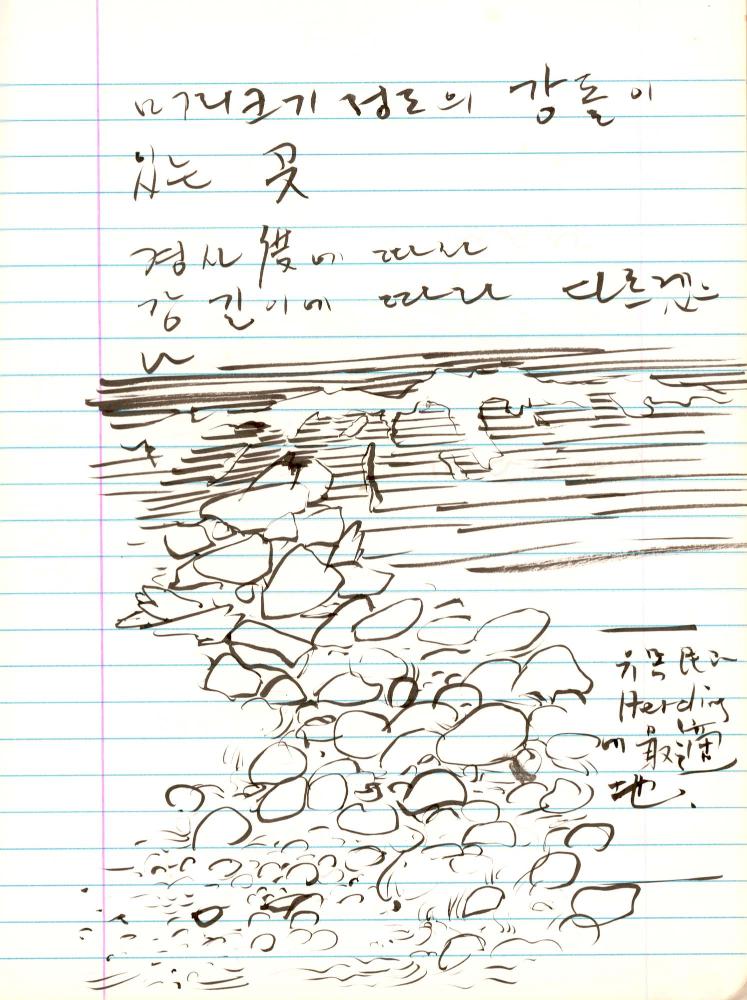 머리크기 정도의 강돌이
있는 곳
경사 에 따라
강 길이에 따라 다르겠으
나
유목民의
Herding
에 最適
地.